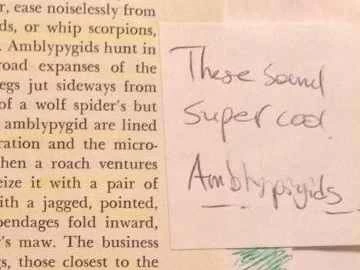 r, ease noiselessly from
ds, or whip scorpions,
. Amblypygids hunt in
road expanses of the
egs jut sideways from
of a wolf spider's but
amblypygid are lined
ration and the micro-
hen a roach ventures
eize it with a pair of
ith a jagged, pointed,
pendages fold inward,
r's maw. The business
gs, those closest to the
These sound
super cool
Amblypygids